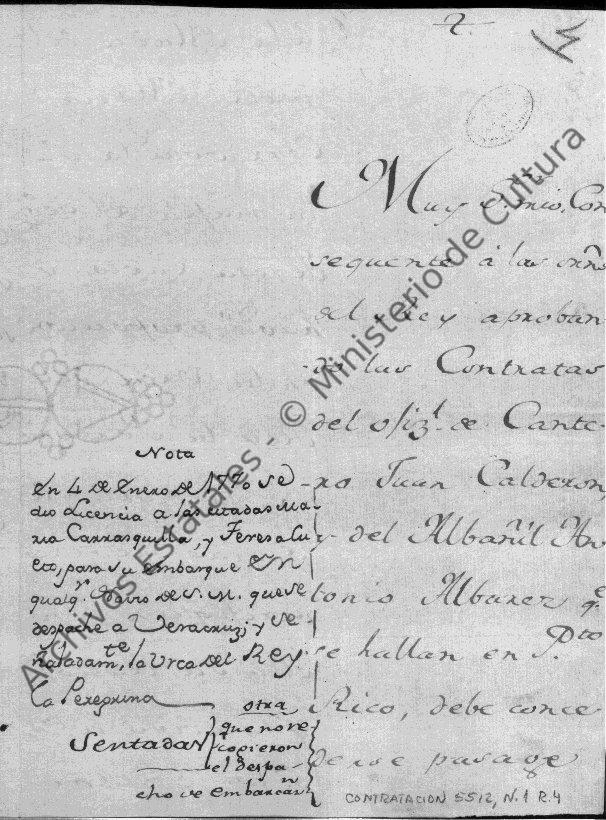 2.
Muy S.r mio, Con
sequente à las orñs
del Rey aproban-
do las Contratas
del ofiz.l de Cante-
ro Juan Calderon
y del Albañil An
tonio Albarez q.e
se hallan en P.to
Rico, debe conce
derse pasage
Nota
En 4 de Enero de 1770 se
dio Licencia a las citadas Ma-
ria Carrasquilla, y Teresa Cu
eto, para su embarque en
qualq.r Navio de S. M. que se
despache a Veracruz; y se-
ñaladam.te la Urca del Rey
la Peregrina
otra
Sentadas
que no se
copieron
el despa-
cho se embarcan
Archivos Estatales - © Ministerio de Cultura
CONTRATACION 5512, N.1 R.4